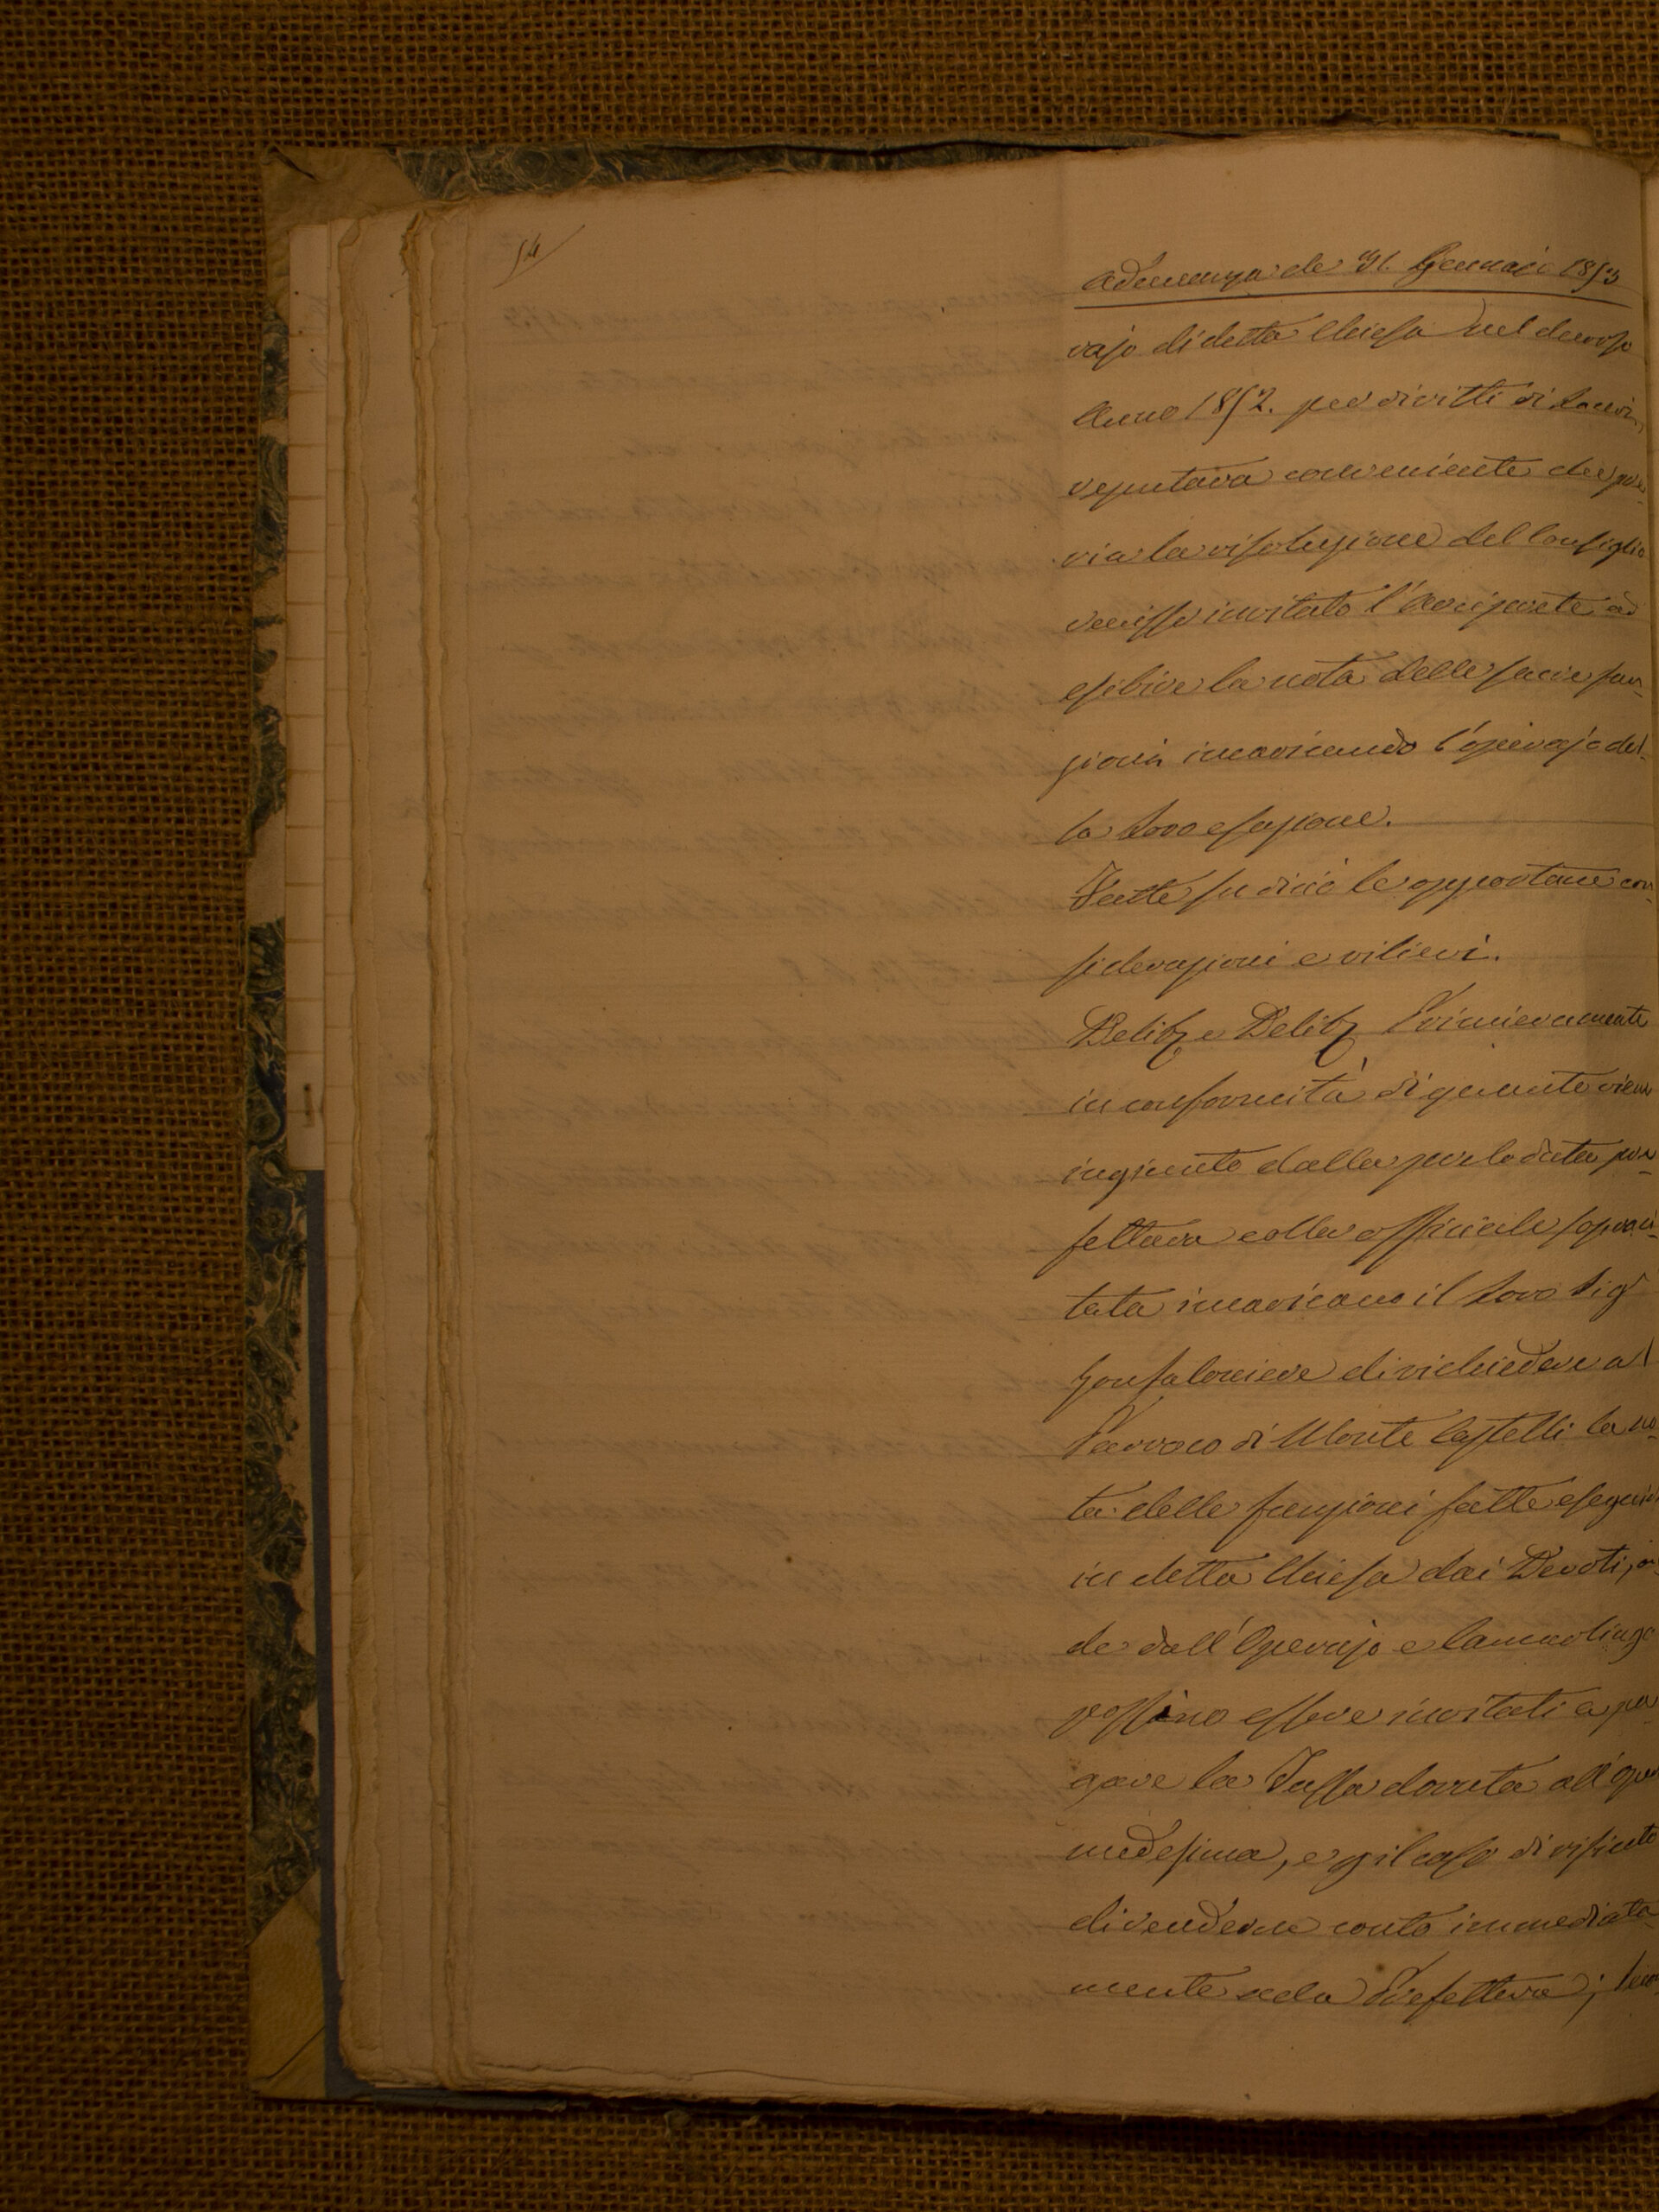 54
Adunanza de' 31. Gennaio 1853
rajo di detta Chiesa nel decorso
Anno 1852. per diritti di Lavori,
reputava conveniente che pre-
via la risoluzione del Consiglio
venisse invitato l'Arciprete ad
esibire la nota delle sacre fun-
zioni incaricando l'operajo del-
la Loro esazione.
Fatte su di ciò le opportune con-
siderazioni e rilievi.
Delib. e Delib. Primieramente
in conformità di quanto viene
ingiunto dalla prelodata pre-
fettura colla officiale sopraci-
tata incaricano il Loro Sigr
Gonfaloniere di richiedere al
Parroco di Monte Castelli la no-
ta delle funzioni fatte eseguire
in detta Chiesa dai Devoti, on-
de dall'Operajo e Camarlingo
possino essere invitati a pa-
gare la Tassa dovuta all'opera
medesima, e pil caso di rifiuto
di renderne conto immediata-
mente ala Prefettura;